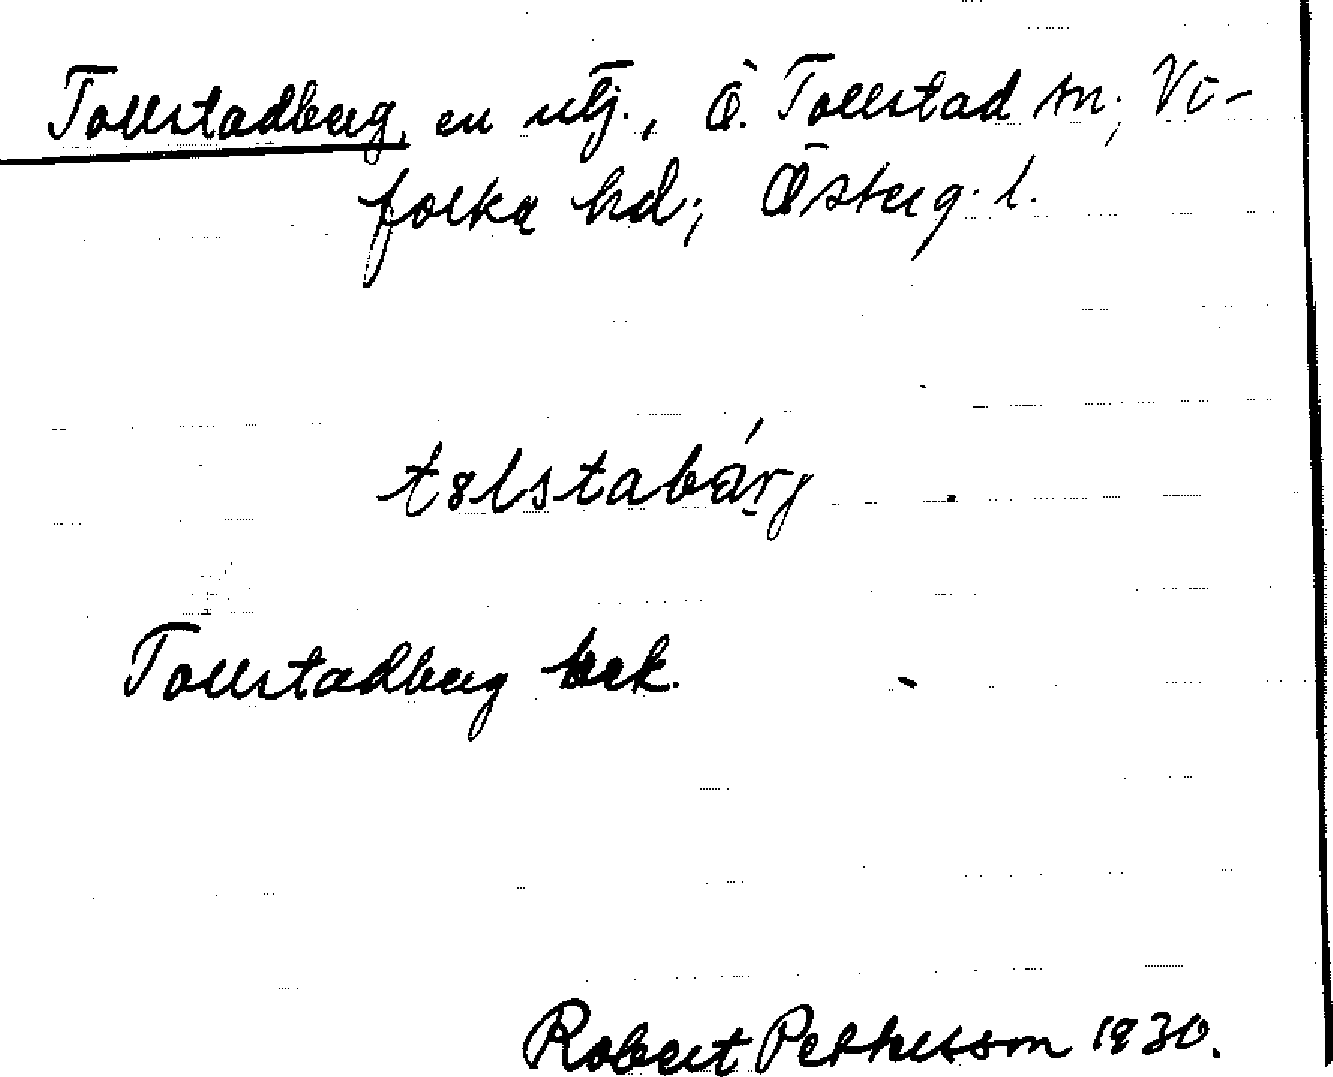 Tollstadberg, en utj., Ö. Tollstad sn; Vi-
folka hd; Österg. l.
tɷlstabárj
Tollstadberg bek.
Robert Pettersson 1930.